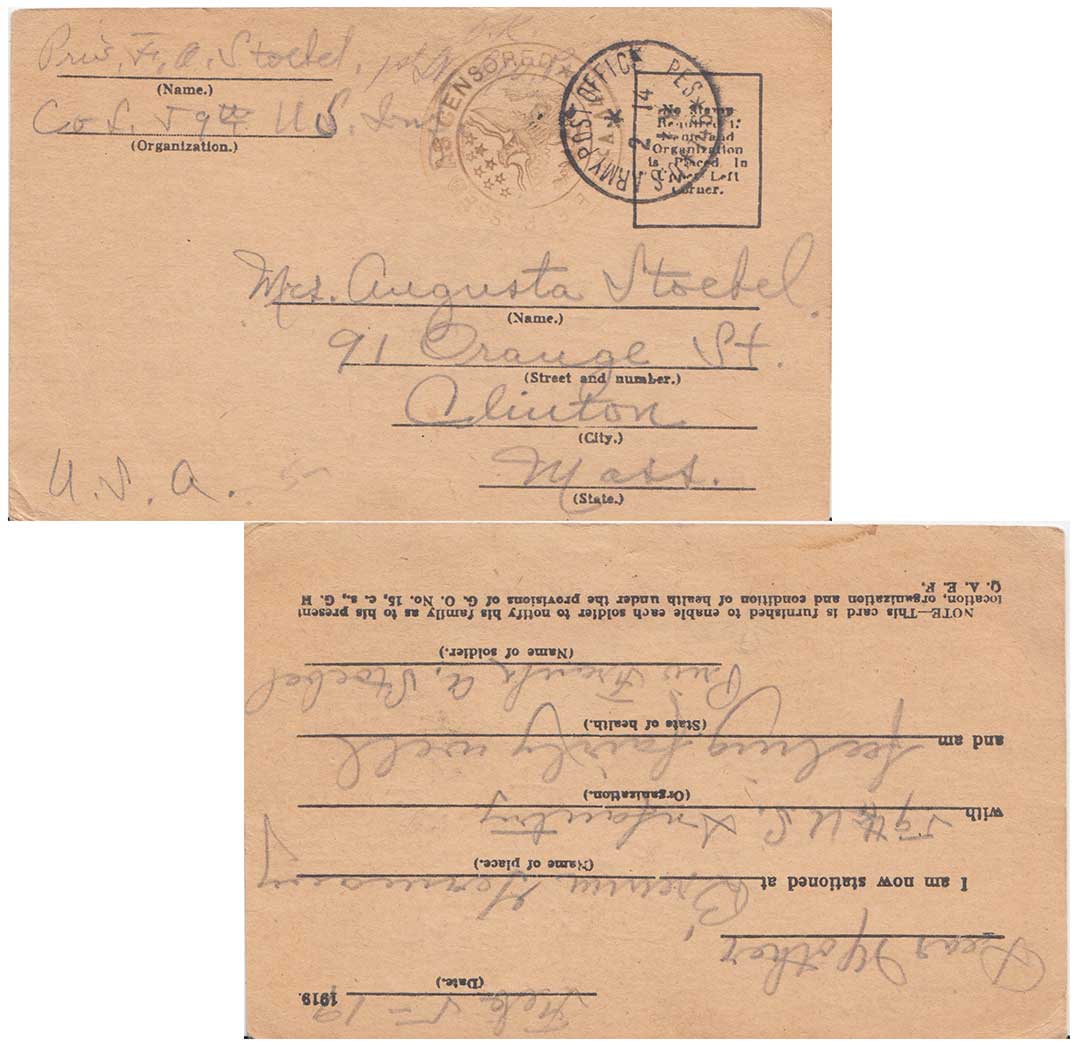 Priv. F. A. Stoebel,
(Name.)
Co L. 59th U.S. Inf
(Organization.)
O.K.
CENSORED
PASSED AS
U.S. ARMY POST OFFICE
2 14
No Stamp
Required if
Name and
Organization
is Placed In
Upper Left
Corner.
Mrs. Augusta Stoebel.
(Name.)
91 Orange St.
(Street and number.)
Clinton
(City.)
Mass.
(State.)
U. S. A.
Feb. 5 - 19 1919.
(Date.)
Dear Mother
I am now stationed at Bremm Germany
(Name of place.)
with 59th U.S. Infantry
(Organization.)
and am feeling fairly well
(State of health.)
Priv Frank A. Stoebel
(Name of soldier.)
NOTE—This card is furnished to enable each soldier to notify his family as to his present
location, organization and condition of health under the provisions of G. O. No. 15, c. s., G. H
Q. A. E. F.